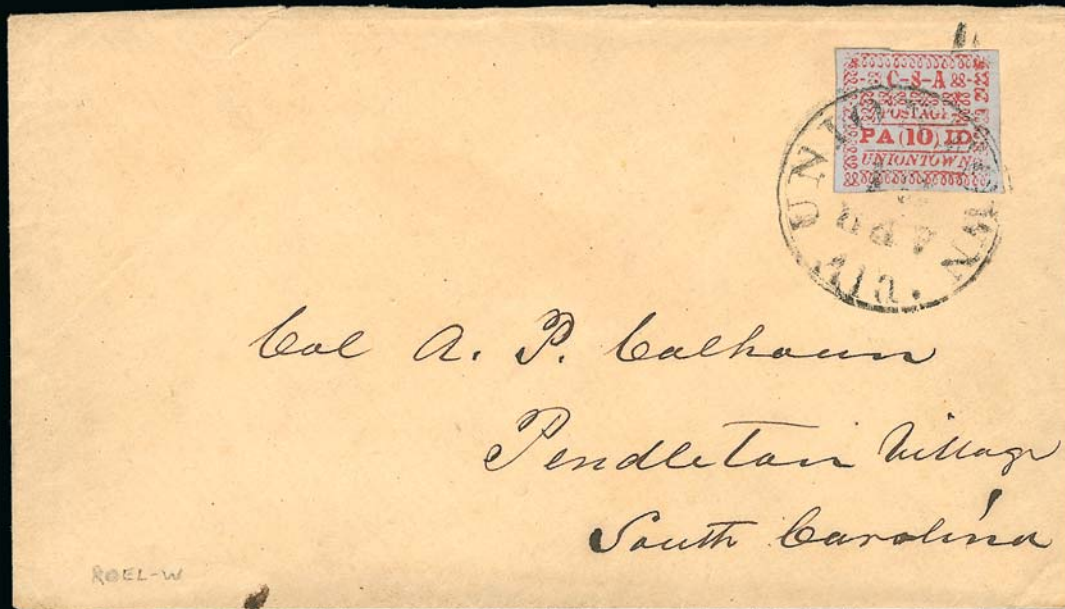 C-S-A
POSTAGE
PA(10)ID
UNIONTOWN
UNIONTOWN
APR
Col A. P. Calhoun
Pendleton Village
South Carolina
ROEL-W